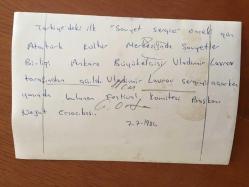 Türkiyedeki ilk "Sovyet sergisi" önceki gün
Atatürk Kültür Merkezi'nde Sovyetler
Birliği Ankara Büyükelçisi Vladimir Lavrov
tarafından açıldı. Vladimir Lavrov sergiyi açarken
yanında bulunan Festival Komitesi Başkanı
Nejat Eczacıbaşı.
7.7.1986